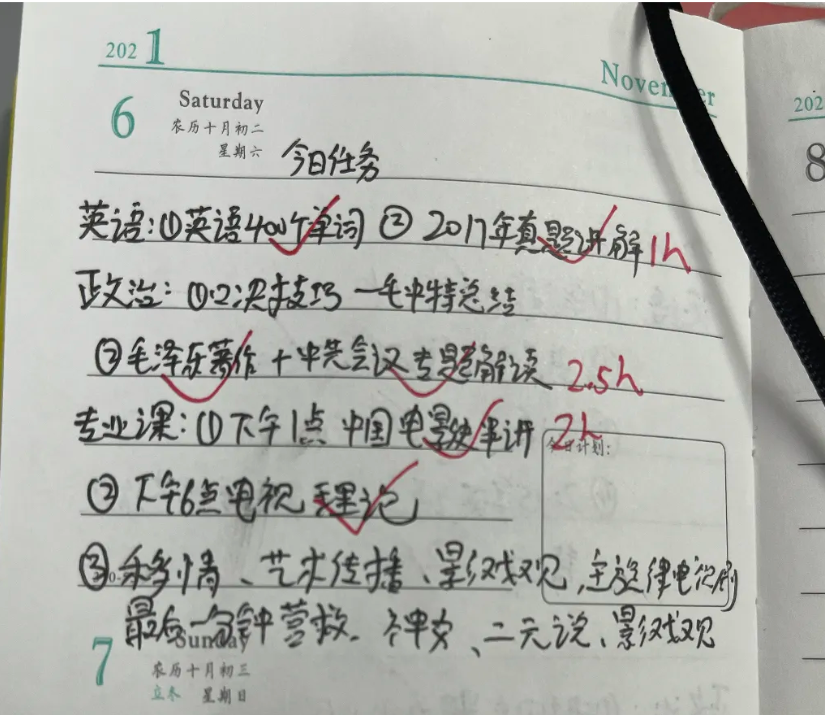 2021
November
6 Saturday
农历十月初二
星期六
今日任务
英语:①英语400个单词 ② 2017年真题讲解 1h
政治: ① 决技巧 一毛中特总结
②毛泽东著作 + 中央会议专题解读 2.5h
专业课:①下午1点 中国电影史串讲 2h
今日计划:
② 下午6点电视理论
③ 情、艺术传播、影戏观,主旋律电视剧
最后一分钟营救、 女、二元说、影戏观
7 Sunday
农历十月初三
立冬 星期日
202
8